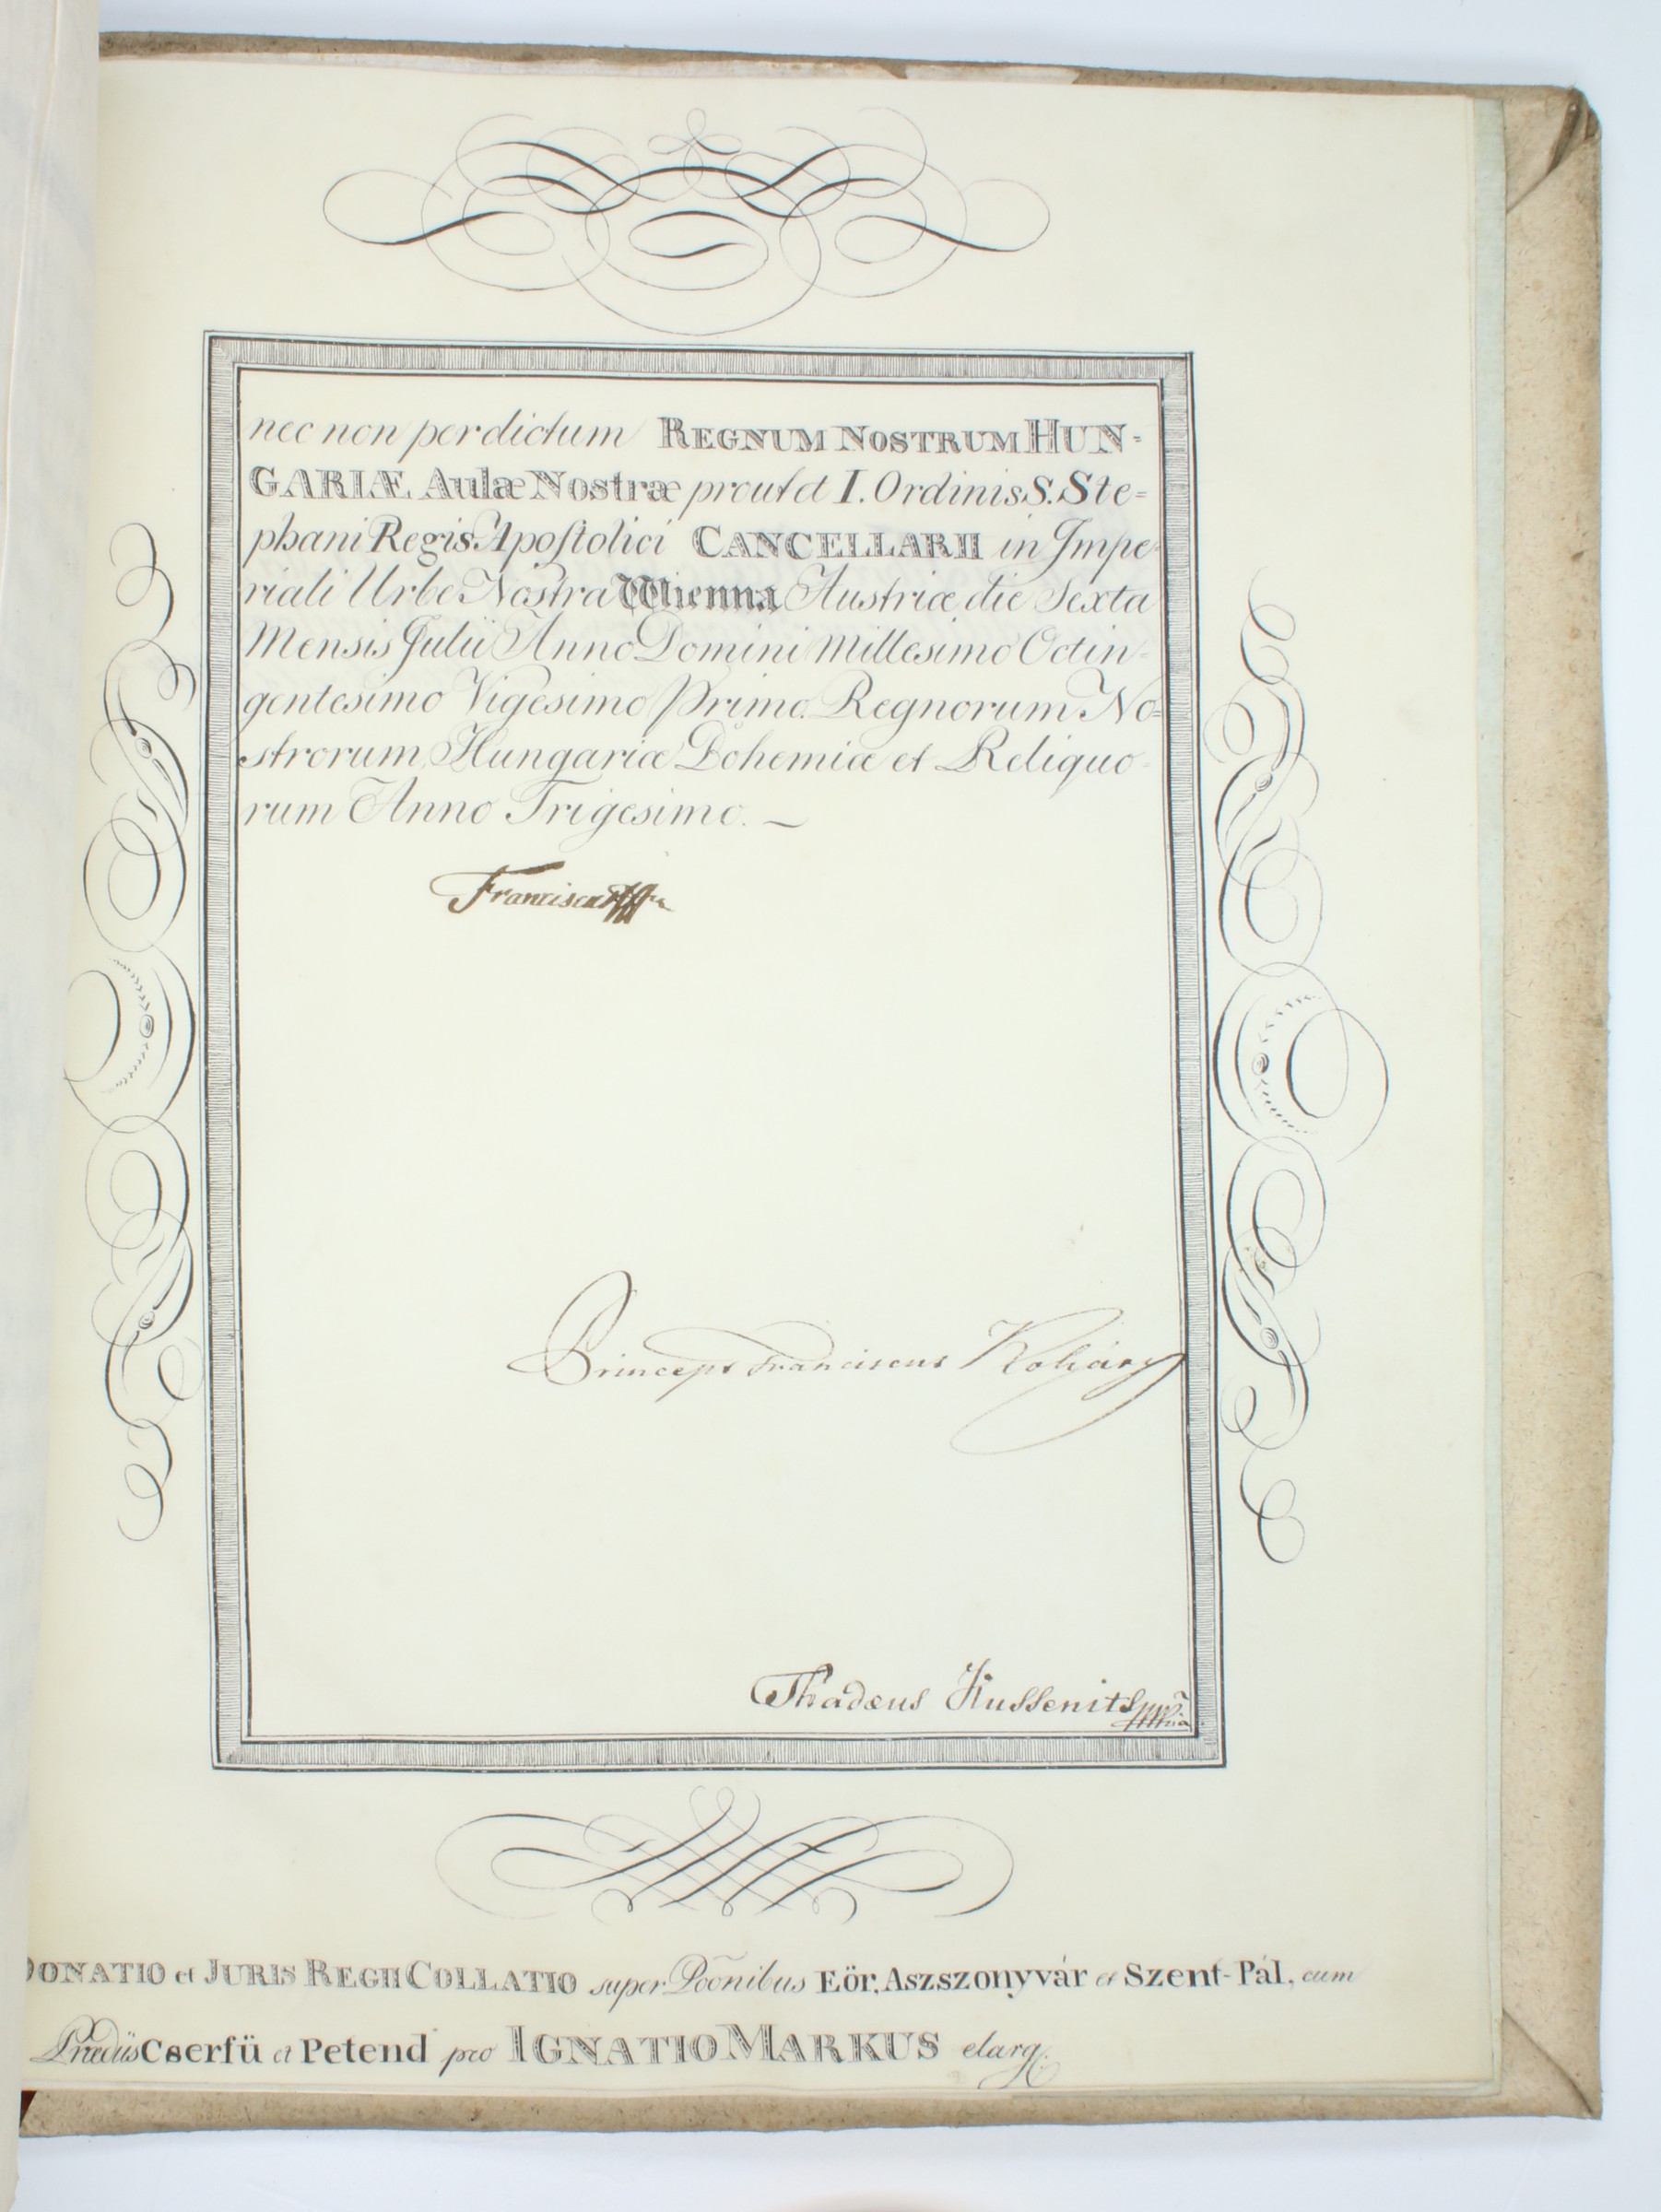 nec non per dictum REGNUM NOSTRUM HUN-
GARIÆ Aulæ Nostræ prout et I. Ordinis S. Ste=
phani Regis Apostolici CANCELLARII in Impe
riali Urbe Nostra Wienna Austriæ die Sexta
Mensis Julii Anno Domini Millesimo Octin-
gentesimo Vigesimo Primo. Regnorum No=
strorum Hungariæ Bohemiæ et Reliquo-
rum Anno Trigesimo. —
Franciscus
Princeps Franciscus Koháry
Thadæus Hussenits
DONATIO et JURIS REGII COLLATIO super Poōnibus Eör, Aszszonyvár et Szent-Pál, cum
Prædiis Cserfü et Petend pro IGNATIO MARKUS elarg.